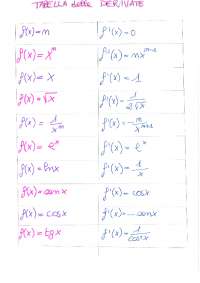 TABELLA delle DERIVATE
f(x)=n f'(x)=0
f(x)=xⁿ f'(x)=nxⁿ⁻¹
f(x)=x f'(x)=1
f(x)=√x f'(x)=1/2√x
f(x)=1/xⁿ f'(x)=-n/xⁿ⁺¹
f(x)=eˣ f'(x)=eˣ
f(x)=lnx f'(x)=1/x
f(x)=senx f'(x)=cosx
f(x)=cosx f'(x)=-senx
f(x)=tgx f'(x)=1/cos²x